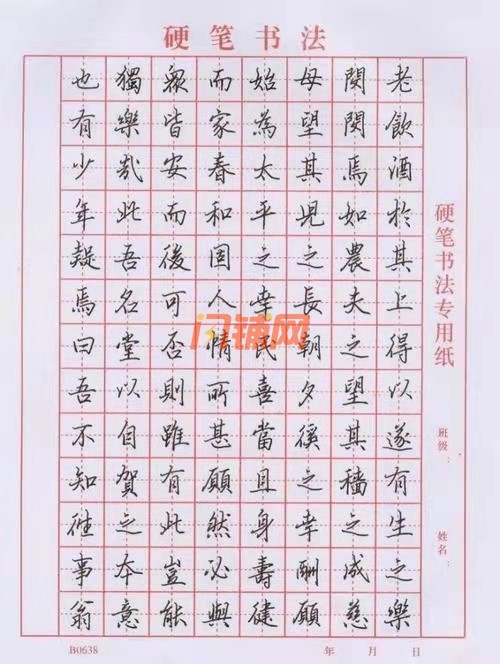 硬笔书法
老飲酒於其上得以遂有生之樂
閔閔焉如農夫之望其穡之成慈
母望其兒之長朝夕徯之幸酬願
始為太平之幸民喜當且身壽健
而家春和固人情所甚願然必與
衆皆安而後可否則雖有此豈能
獨樂哉此吾名堂以自賀之本意
也有少年疑焉曰吾不知往事翁
硬笔书法专用纸
班级：
姓名：
闪铺网
B0638
年 月 日